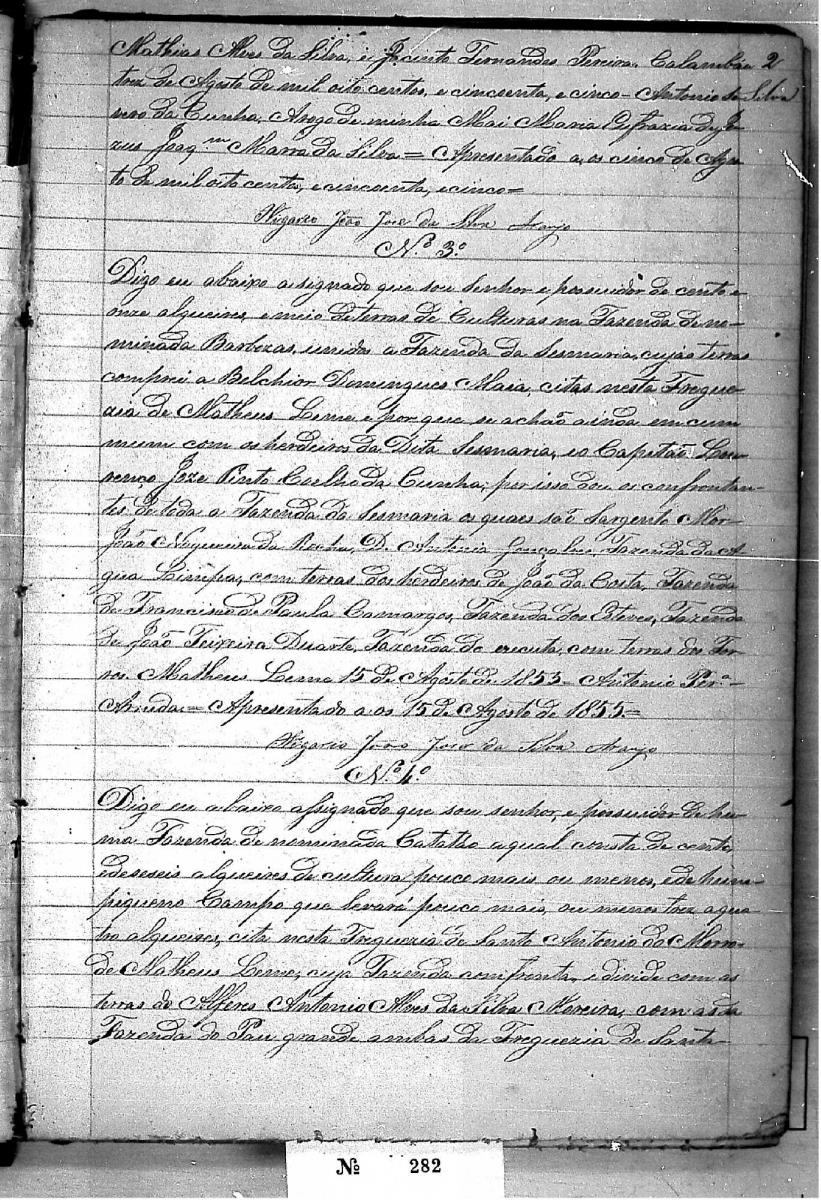 Mathias Alves da Silva, e Jacinto Fernandes Pereira. Calambáo 2
trez de Agosto de mil oito centos, e cincoenta, e cinco - Antonio da Silva
da Cunha, Arogo de minha Mai Maria de Je-
zus Joaq.m Marra da Silva = Apresentado a, os cinco de Agos-
to de mil oito centos, e cincoenta, e cinco =
Vigario João Jose da Silva Araujo
N.o 3.o
Digo eu abaixo asignado que sou Senhor e possuidor de cento e
onze alqueires, e meio de terras de Culturas na Fazenda de no-
minada Barbozas, unidas a Fazenda da Sesmaria, cujas terras
comprei a Belchior Domingues Maia, citas nesta Fregue-
zia de Matheus Leme e por que se achão ainda em cum
mum com os herdeiros da Dita Sesmaria, e o Capetão Lou-
renço Joze Pinto Coelho da Cunha, por isso dou os confrontan-
tes de toda a Fazenda da Sesmaria os quaes são Sargento Mor-
João Nogueira da Rocha, D. Antonia Gonçalves, Fazenda da A-
goa Limpa, com terras dos herdeiros de João da Costa, Fazenda
de Francisco de Paula Camargos, Fazenda dos Esteves, Fazenda
de João Teixeira Duarte, Fazenda do com terras dos Fer-
ros. Matheus Leme 15 de Agosto de 1855 = Antonio Per.a -
Arruda = Apresentado a os 15 de Agosto de 1855 =
Vigario João Jose da Silva Araujo
N.o 4.o
Digo eu abaixo assignado que sou senhor, e possuidor de hu-
ma Fazenda de nominada Catatão a qual consta de cento
e deseseis alqueires de cultura pouco mais ou menos, e de hum
piqueno Campo que levará pouco mais, ou menos trez a qua
tro alqueires, cita nesta Freguezia de Santo Antonio do Morro
de Matheus Leme, cuja Fazenda comfronta, e divide com as
terras do Alferes Antonio Alves da Silva Moreira, com as da
Fazenda do Pau grande ambas da Freguezia de Santa
Nº 282